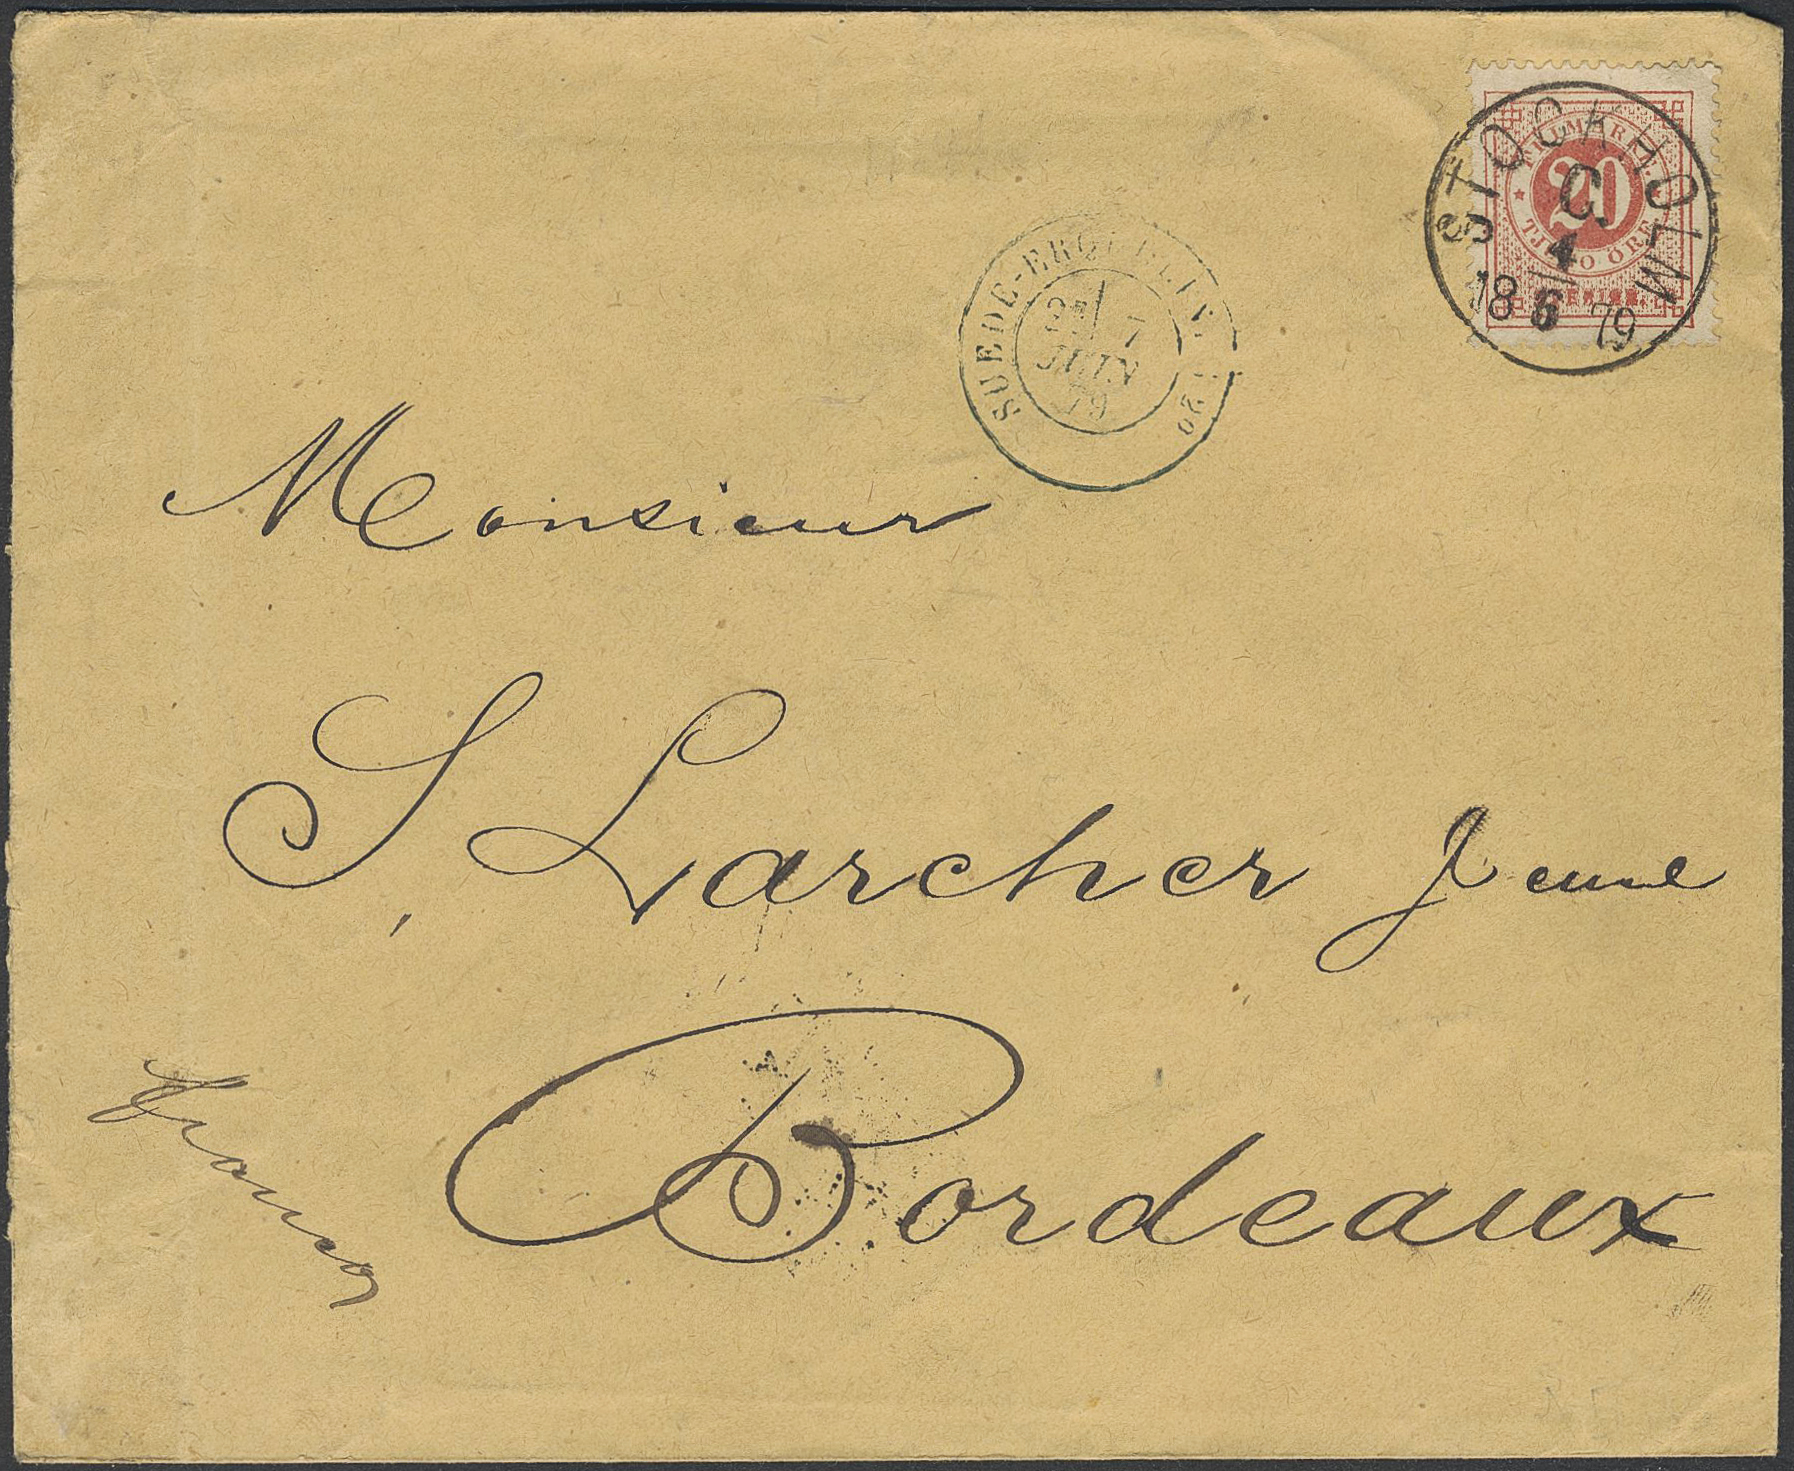 STOCKHOLM
C.
4
6
18 79
FRIMÄRKE.
20
TJUGO ÖRE
SVERIGE.
SUEDE-ERQUELINES
7
JUIN
79
Monsieur
S. Larcher Jeune
Bordeaux
franco